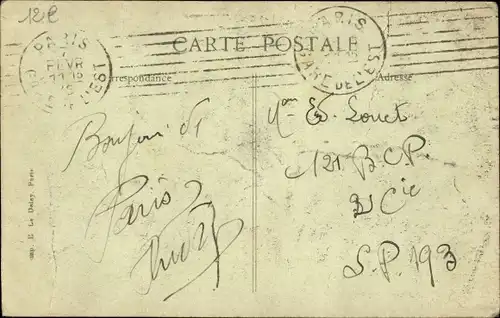 12e
CARTE POSTALE
Correspondance
Adresse
PARIS
GARE DE L'EST
FEVR
PARIS
GARE DE L'EST
Bonjour de
Paris
Ed. Louet
121 B C P.
Cie
S.P. 193
Imp. E. Le Deley, Paris